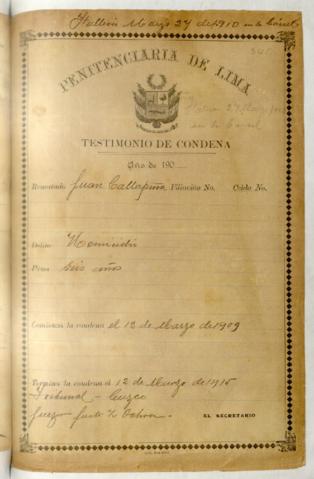 Falleció Marzo 27 de 1910 en la Cárcel
341
PENITENCIARIA DE LIMA
27 Marzo
en la Carcel
TESTIMONIO DE CONDENA
Año de 190
Rematado Juan Callapiña Filiación No. Celda No.
Delito Homicidio
Pena seis años
Comienza la condena el 12 de Marzo de 1909
Termina la condena el 12 de Marzo de 1915
Tribunal - Cuzco
Juez Justo Z Ochoa.
EL SECRETARIO